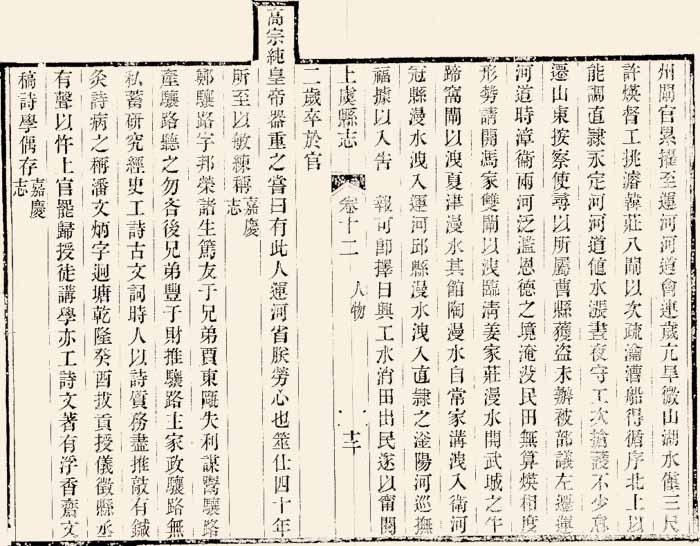 州閘官累擢至運河河道會連歲亢旱微山湖水僅三尺
許煐督工挑濬韓莊八閘以次疏瀹漕船得循序北上以
能調直隸永定河河道值水漲晝夜守工次搶護不少怠
遷山東按察使尋以所屬曹縣獲盜未辦被部議左遷運
河道時漳衞兩河泛濫恩德之境淹没民田無算煐相度
形勢請開馮家雙閘以洩臨清姜家莊漫水開武城之午
蹄窩閘以洩夏津漫水其館陶漫水自常家溝洩入衞河
冠縣漫水洩入運河邱縣漫水洩入直隸之滏陽河巡撫
福據以入告 報可卽擇日興工水消田出民遂以甯閱
上虞縣志 卷十二 人物
二歲卒於官
高宗純皇帝器重之嘗曰有此人運河省朕勞心也筮仕四十年
所至以敏練稱嘉慶志
鄭驤路字邦榮諸生篤友于兄弟賈東甌失利謀鬻驤路
產驤路聽之勿吝後兄弟豐于財推驤路主家政驤路無
私蓄研究經史工詩古文詞時人以詩質務盡推敲有鍼
灸詩病之稱潘文炳字迴塘乾隆癸酉拔貢授儀徵縣丞
有聲以忤上官罷歸授徒講學亦工詩文著有浮香齋文
稿詩學偶存嘉慶志